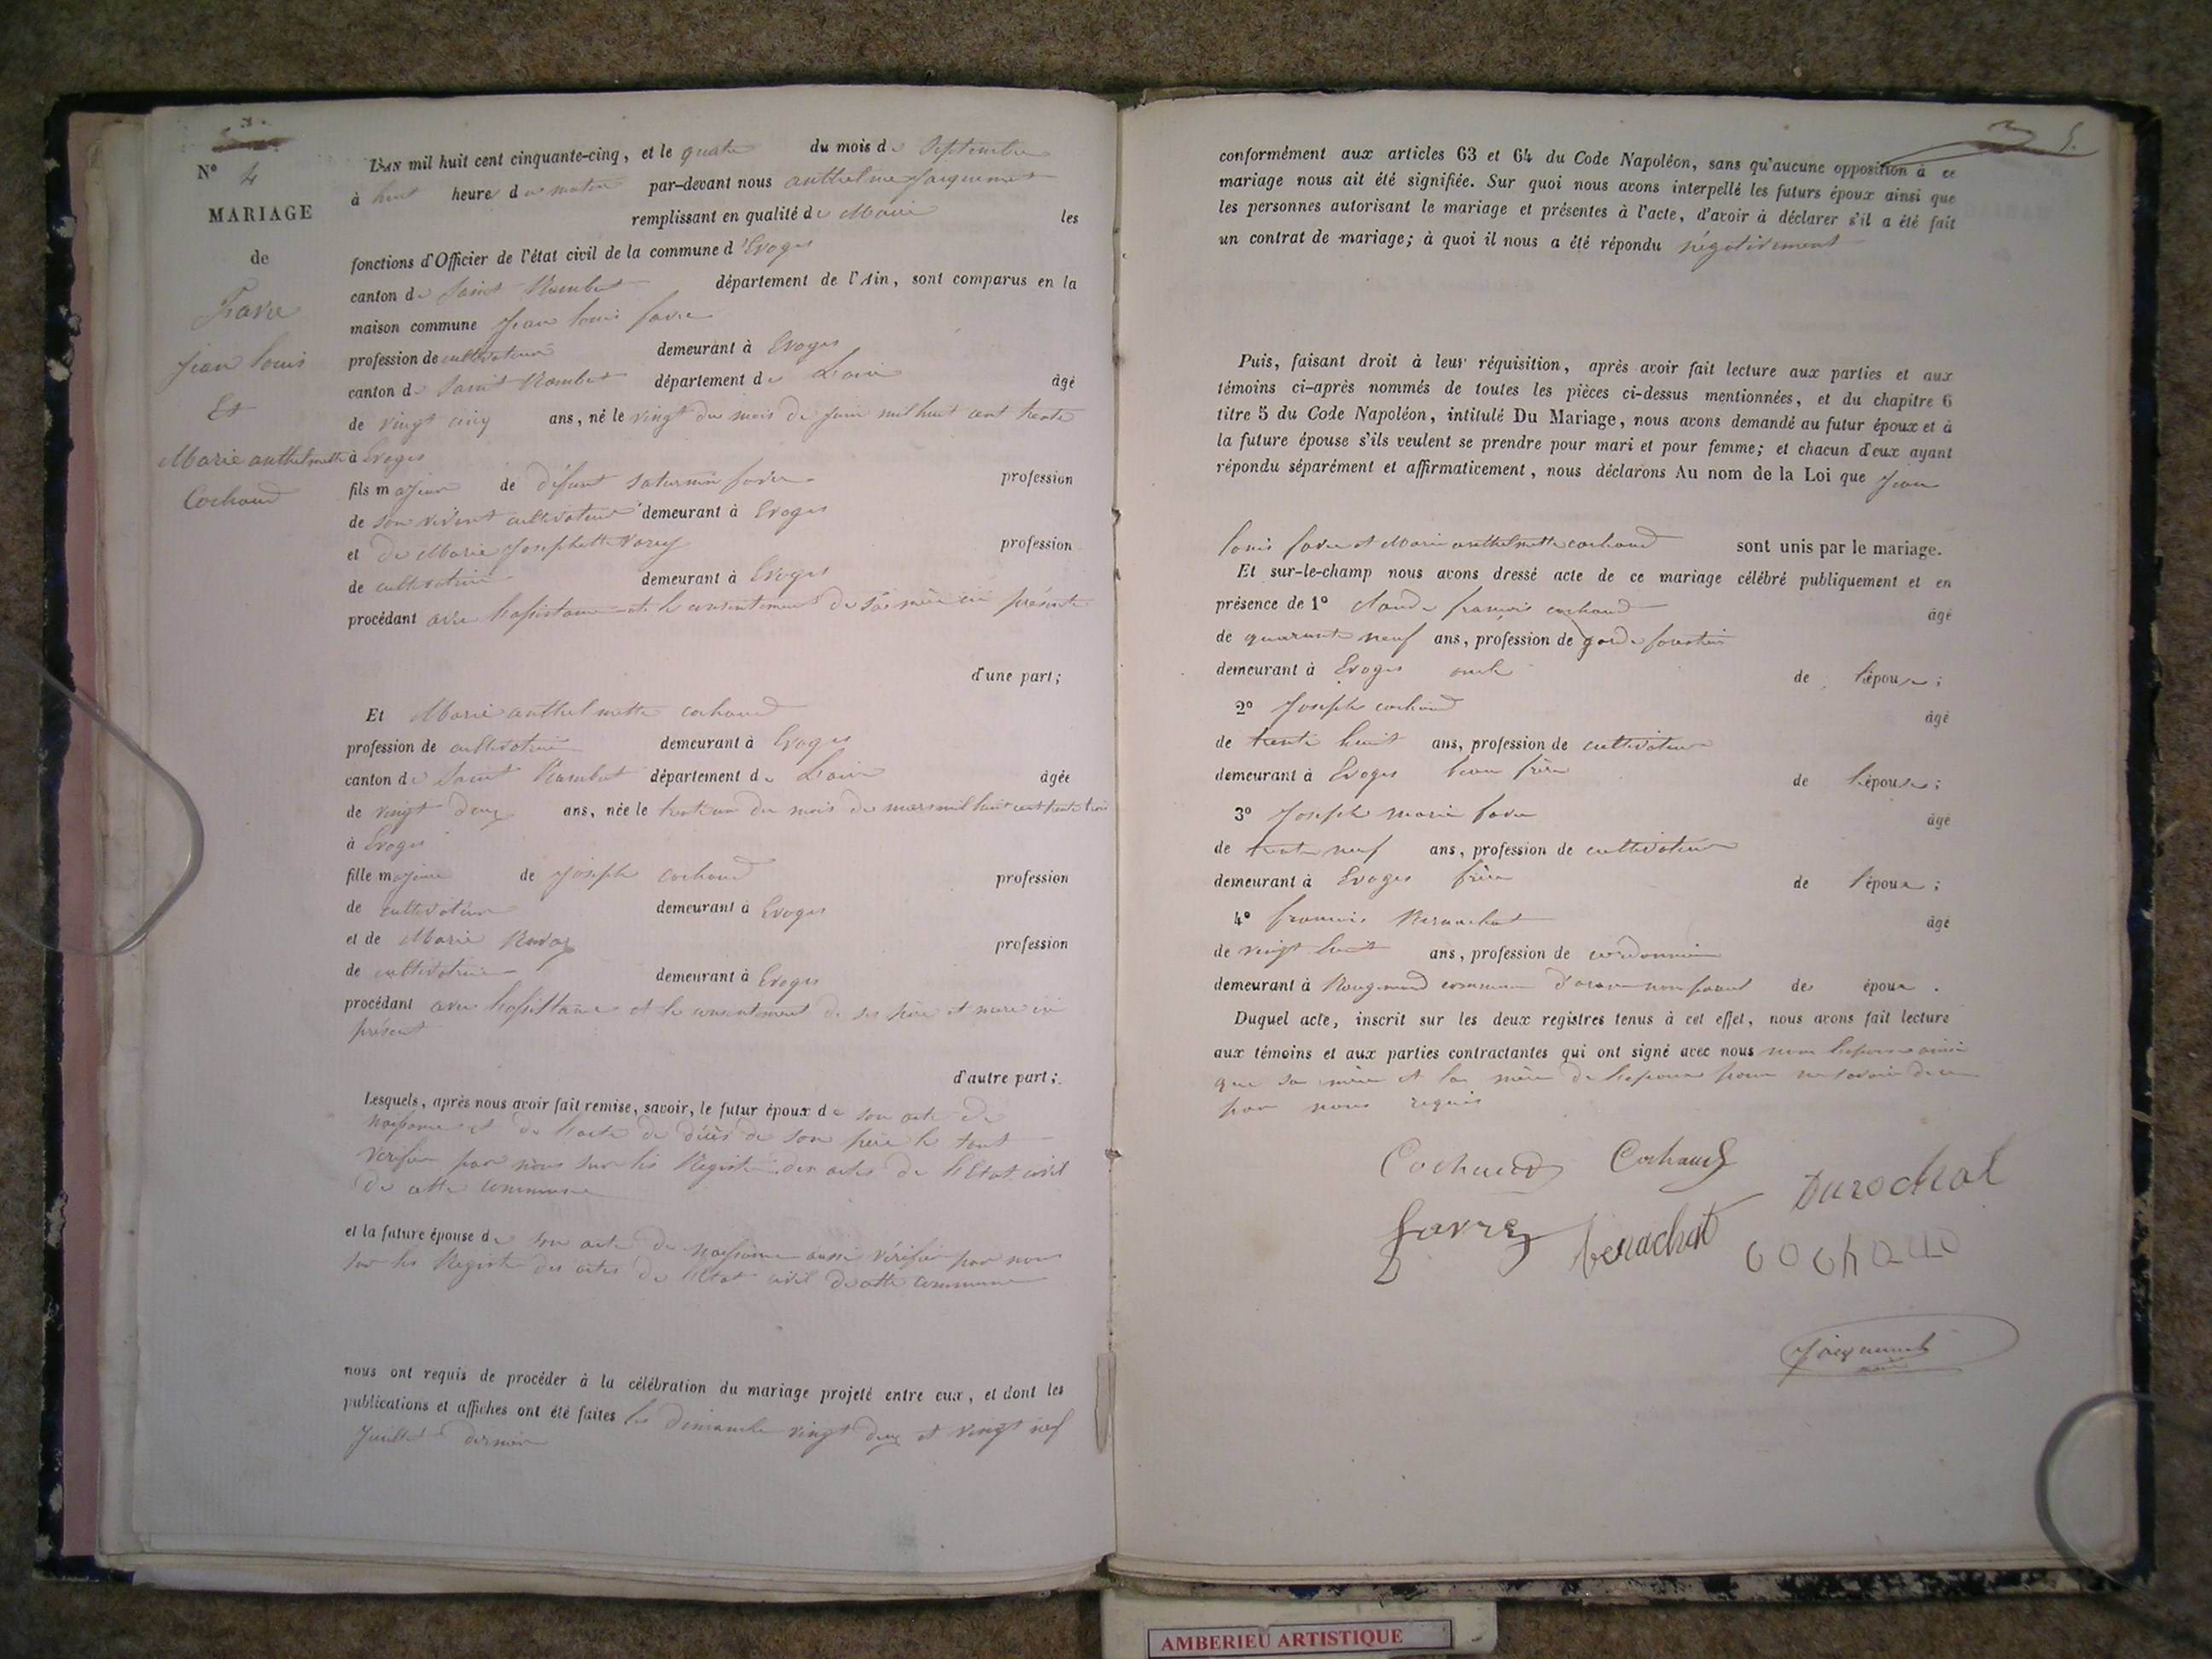 N° 4
MARIAGE
de
Favre
Jean Louis
Et
Marie anthelmette
Cochaud
L'AN mil huit cent cinquante-cinq, et le quatre du mois de Septembre
à huit heure du matin par-devant nous anthelme Jacquemet
remplissant en qualité de Maire les
fonctions d'Officier de l'état civil de la commune d'Evoges
canton de Saint Rambert département de l'Ain, sont comparus en la
maison commune Jean louis favre
profession de cultivateur demeurant à Evoges
canton de Saint Rambert département de L'ain âgé
de vingt cinq ans, né le vingt du mois de juin mil huit cent trente
à Evoges
fils majeur de défunt saturnin favre profession
de son vivant cultivateur demeurant à Evoges
et de Marie Josephette Varey profession
de cultivatrice demeurant à Evoges
procédant avec l'assistance et le consentement de sa mère ici présente
d'une part;
Et Marie anthelmette cochaud
profession de cultivatrice demeurant à Evoges
canton de Saint Rambert département de L'ain âgée
de vingt deux ans, née le trente un du mois de mars mil huit cent trente trois
à Evoges
fille majeure de Joseph cochaud profession
de cultivateur demeurant à Evoges
et de Marie profession
de cultivatrice demeurant à Evoges
procédant avec l'assistance et le consentement de ses père et mere ici
présent
d'autre part;
Lesquels, après nous avoir fait remise, savoir, le futur époux de son acte de
naissance et de l'acte de décès de son père le tout
vérifié par nous sur les Registre des actes de l'Etat civil
de cette commune
et la future épouse de son acte de naissance aussi vérifié par nous
sur les Registre des actes de l'Etat civil de cette commune
nous ont requis de procéder à la célébration du mariage projeté entre eux, et dont les
publications et affiches ont été faites les dimanche vingt deux et vingt neuf
Juillet dernier
5.
conformément aux articles 63 et 64 du Code Napoléon, sans qu'aucune opposition à ce
mariage nous ait été signifiée. Sur quoi nous avons interpellé les futurs époux ainsi que
les personnes autorisant le mariage et présentes à l'acte, d'avoir à déclarer s'il a été fait
un contrat de mariage; à quoi il nous a été répondu négativement
Puis, faisant droit à leur réquisition, après avoir fait lecture aux parties et aux
témoins ci-après nommés de toutes les pièces ci-dessus mentionnées, et du chapitre 6
titre 5 du Code Napoléon, intitulé Du Mariage, nous avons demandé au futur époux et à
la future épouse s'ils veulent se prendre pour mari et pour femme; et chacun d'eux ayant
répondu séparément et affirmativement, nous déclarons Au nom de la Loi que Jean
louis favre et Marie anthelmette cochaud sont unis par le mariage.
Et sur-le-champ nous avons dressé acte de ce mariage célébré publiquement et en
présence de 1° claude françois cochaud âgé
de quarante neuf ans, profession de garde forestier
demeurant à Evoges oncle de l'épouse;
2° Joseph cochaud âgé
de trente huit ans, profession de cultivateur
demeurant à Evoges beau frère de l'épouse;
3° Joseph marie favre âgé
de trente neuf ans, profession de cultivateur
demeurant à Evoges frère de l'époux;
4° françois âgé
de vingt huit ans, profession de cordonnier
demeurant à Rougemond commune d'aranc non parent des époux.
Duquel acte, inscrit sur les deux registres tenus à cet effet, nous avons fait lecture
aux témoins et aux parties contractantes qui ont signé avec nous non l'épouse ainsi
que sa mère et la mère de l'époux pour ne savoir de ce
par nous requis
Cochaud Cochaud Durochat
favre cochaud
Jacquemet
maire
AMBERIEU ARTISTIQUE